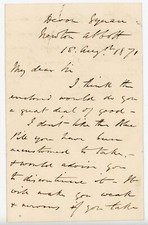 Devon Square
Newton Abbott
15 Augst 1871
My dear Sir
I think the
enclosed would do you
a great deal of good –
I don't like the Blue
Pill you have been
accustomed to take,
& would advise you
to discontinue it. It
will make you weak
& nervous if you take